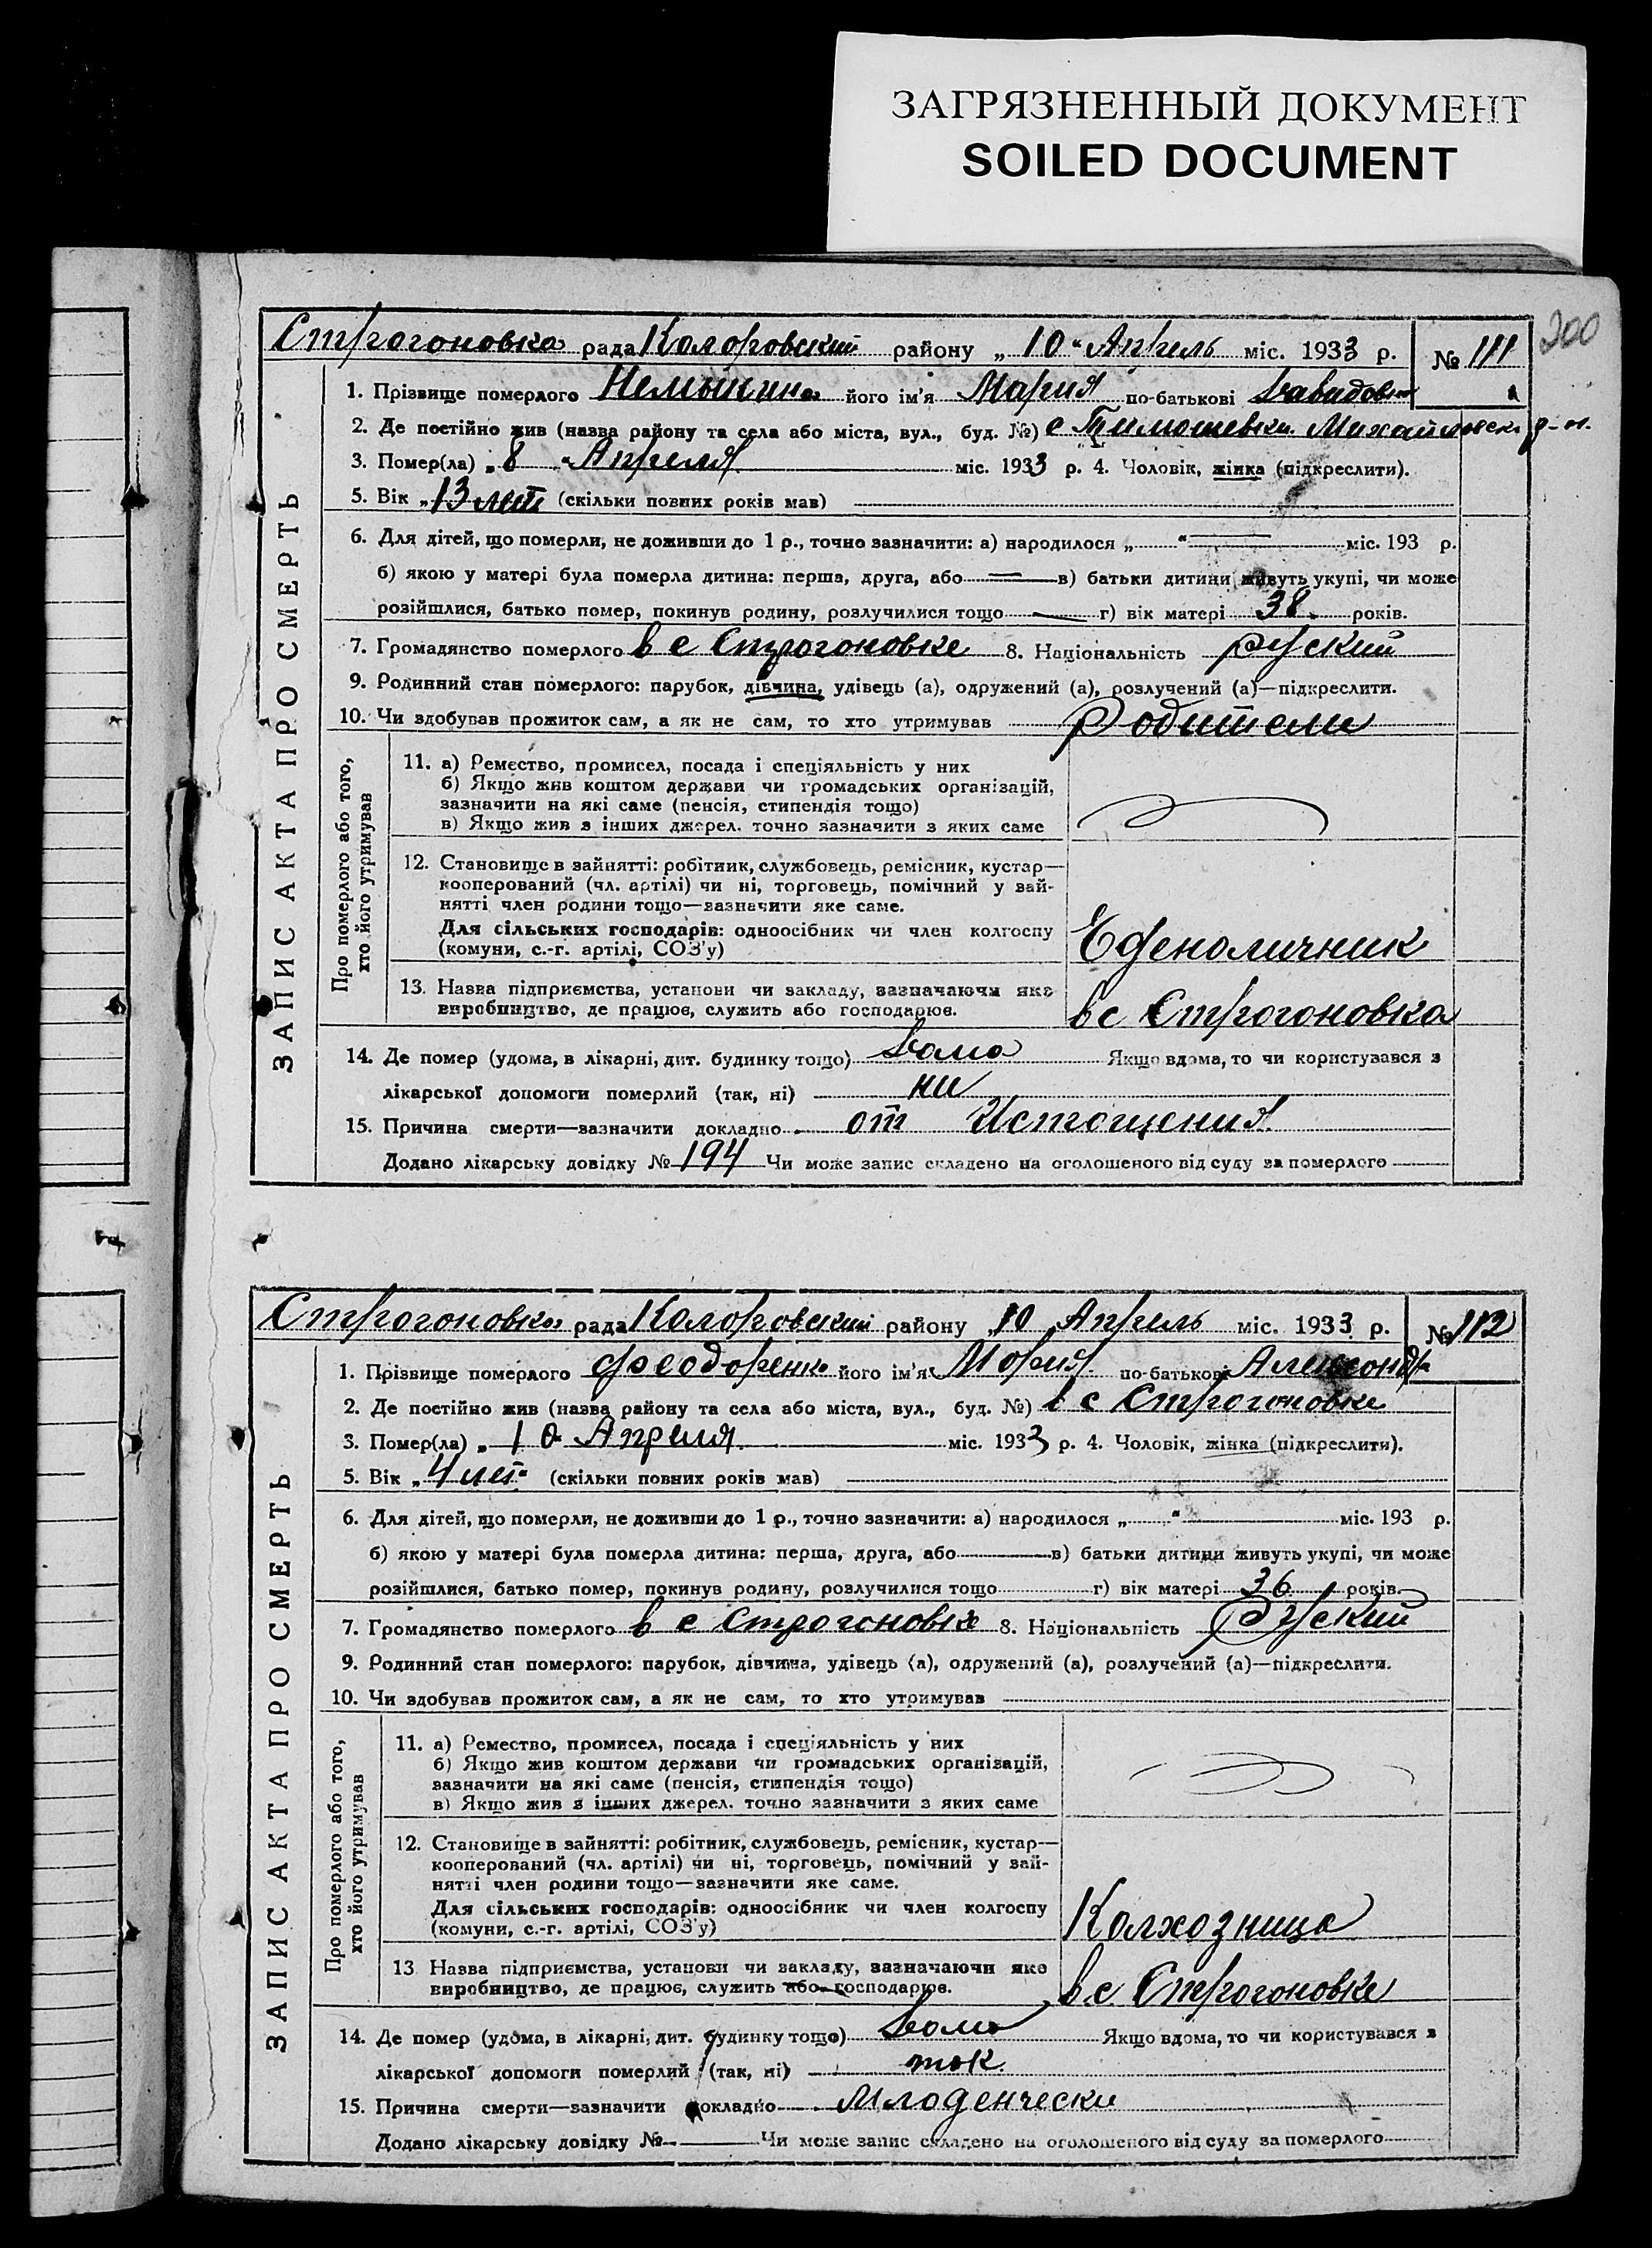 ЗАГРЯЗНЕННЫЙ ДОКУМЕНТ
SOILED DOCUMENT
200
ЗАПИС АКТА ПРО СМЕРТЬ
Строгоновка рада Коларовский району „ 10 “ Апрель міс. 1933 р. № 111
1. Прізвище померлого його ім'я Мария по-батькові Давидовн
2. Де постійно жив (назва району та села або міста, вул., буд. №) с Тимошевки Михайловск р-н.
3. Помер(ла) „ 8 “ Апреля міс. 1933 р. 4. Чоловік, жінка (підкреслити).
5. Вік „ 13 лет (скільки повних років мав)
6. Для дітей, що померли, не доживши до 1 р., точно зазначити: а) народилося „ “ міс. 193 р.
б) якою у матері була померла дитина: перша, друга, або в) батьки дитини живуть укупі, чи може
розійшлися, батько помер, покинув родину, розлучилися тощо г) вік матері 38 років.
7. Громадянство померлого в с Строгоновке 8. Національність Руский
9. Родинний стан померлого: парубок, дівчина, удівець (а), одружений (а), розлучений (а)—підкреслити.
10. Чи здобував прожиток сам, а як не сам, то хто утримував Родители
Про померлого або того,
хто його утримував
11. а) Ремество, промисел, посада і спеціяльність у них
б) Якщо жив коштом держави чи громадських організацій,
зазначити на які саме (пенсія, стипендія тощо)
в) Якщо жив з інших джерел, точно зазначити з яких саме
12. Становище в зайнятті: робітник, службовець, ремісник, кустар—
кооперований (чл. артілі) чи ні, торговець, помічний у зай-
нятті член родини тощо—зазначити яке саме.
Для сільських господарів: одноосібник чи член колгоспу
(комуни, с.-г. артілі, СОЗ'у) Еденоличник
13. Назва підприємства, установи чи закладу, зазначаючи яке
виробництво, де працює, служить або господарює. в с Строгоновка
14. Де помер (удома, в лікарні, дит. будинку тощо) Дома Якщо вдома, то чи користувався з
лікарської допомоги померлий (так, ні) ни
15. Причина смерти—зазначити докладно от Истощения
Додано лікарську довідку № 194 Чи може запис складено на оголошеного від суду за померлого
ЗАПИС АКТА ПРО СМЕРТЬ
Строгоновка рада Коларовский району „ 10 Апрель міс. 1933 р. № 112
1. Прізвище померлого Феодоренко його ім'я Мория по-батькові Александр
2. Де постійно жив (назва району та села або міста, вул., буд. №) в с Строгоновке
3. Помер(ла) „ 10 “ Апреля міс. 1933 р. 4. Чоловік, жінка (підкреслити).
5. Вік „ 4 лет “ (скільки повних років мав)
6. Для дітей, що померли, не доживши до 1 р., точно зазначити: а) народилося „ “ міс. 193 р.
б) якою у матері була померла дитина: перша, друга, або в) батьки дитини живуть укупі, чи може
розійшлися, батько помер, покинув родину, розлучилися тощо г) вік матері 36 років.
7. Громадянство померлого в с Строгоновке 8. Національність Руский
9. Родинний стан померлого: парубок, дівчина, удівець (а), одружений (а), розлучений (а)—підкреслити.
10. Чи здобував прожиток сам, а як не сам, то хто утримував
Про померлого або того,
хто його утримував
11. а) Ремество, промисел, посада і спеціяльність у них
б) Якщо жив коштом держави чи громадських організацій,
зазначити на які саме (пенсія, стипендія тощо)
в) Якщо жив з інших джерел, точно зазначити з яких саме
12. Становище в зайнятті: робітник, службовець, ремісник, кустар—
кооперований (чл. артілі) чи ні, торговець, помічний у зай-
нятті член родини тощо—зазначити яке саме.
Для сільських господарів: одноосібник чи член колгоспу
(комуни, с.-г. артілі, СОЗ'у) Колхозница
13 Назва підприємства, установи чи закладу, зазначаючи яке
виробництво, де працює, служить або господарює. в с. Строгоновке
14. Де помер (удома, в лікарні, дит. будинку тощо) Дома Якщо вдома, то чи користувався з
лікарської допомоги померлий (так, ні) так
15. Причина смерти—зазначити докладно Младенчески
Додано лікарську довідку № Чи може запис складено на оголошеного від суду за померлого